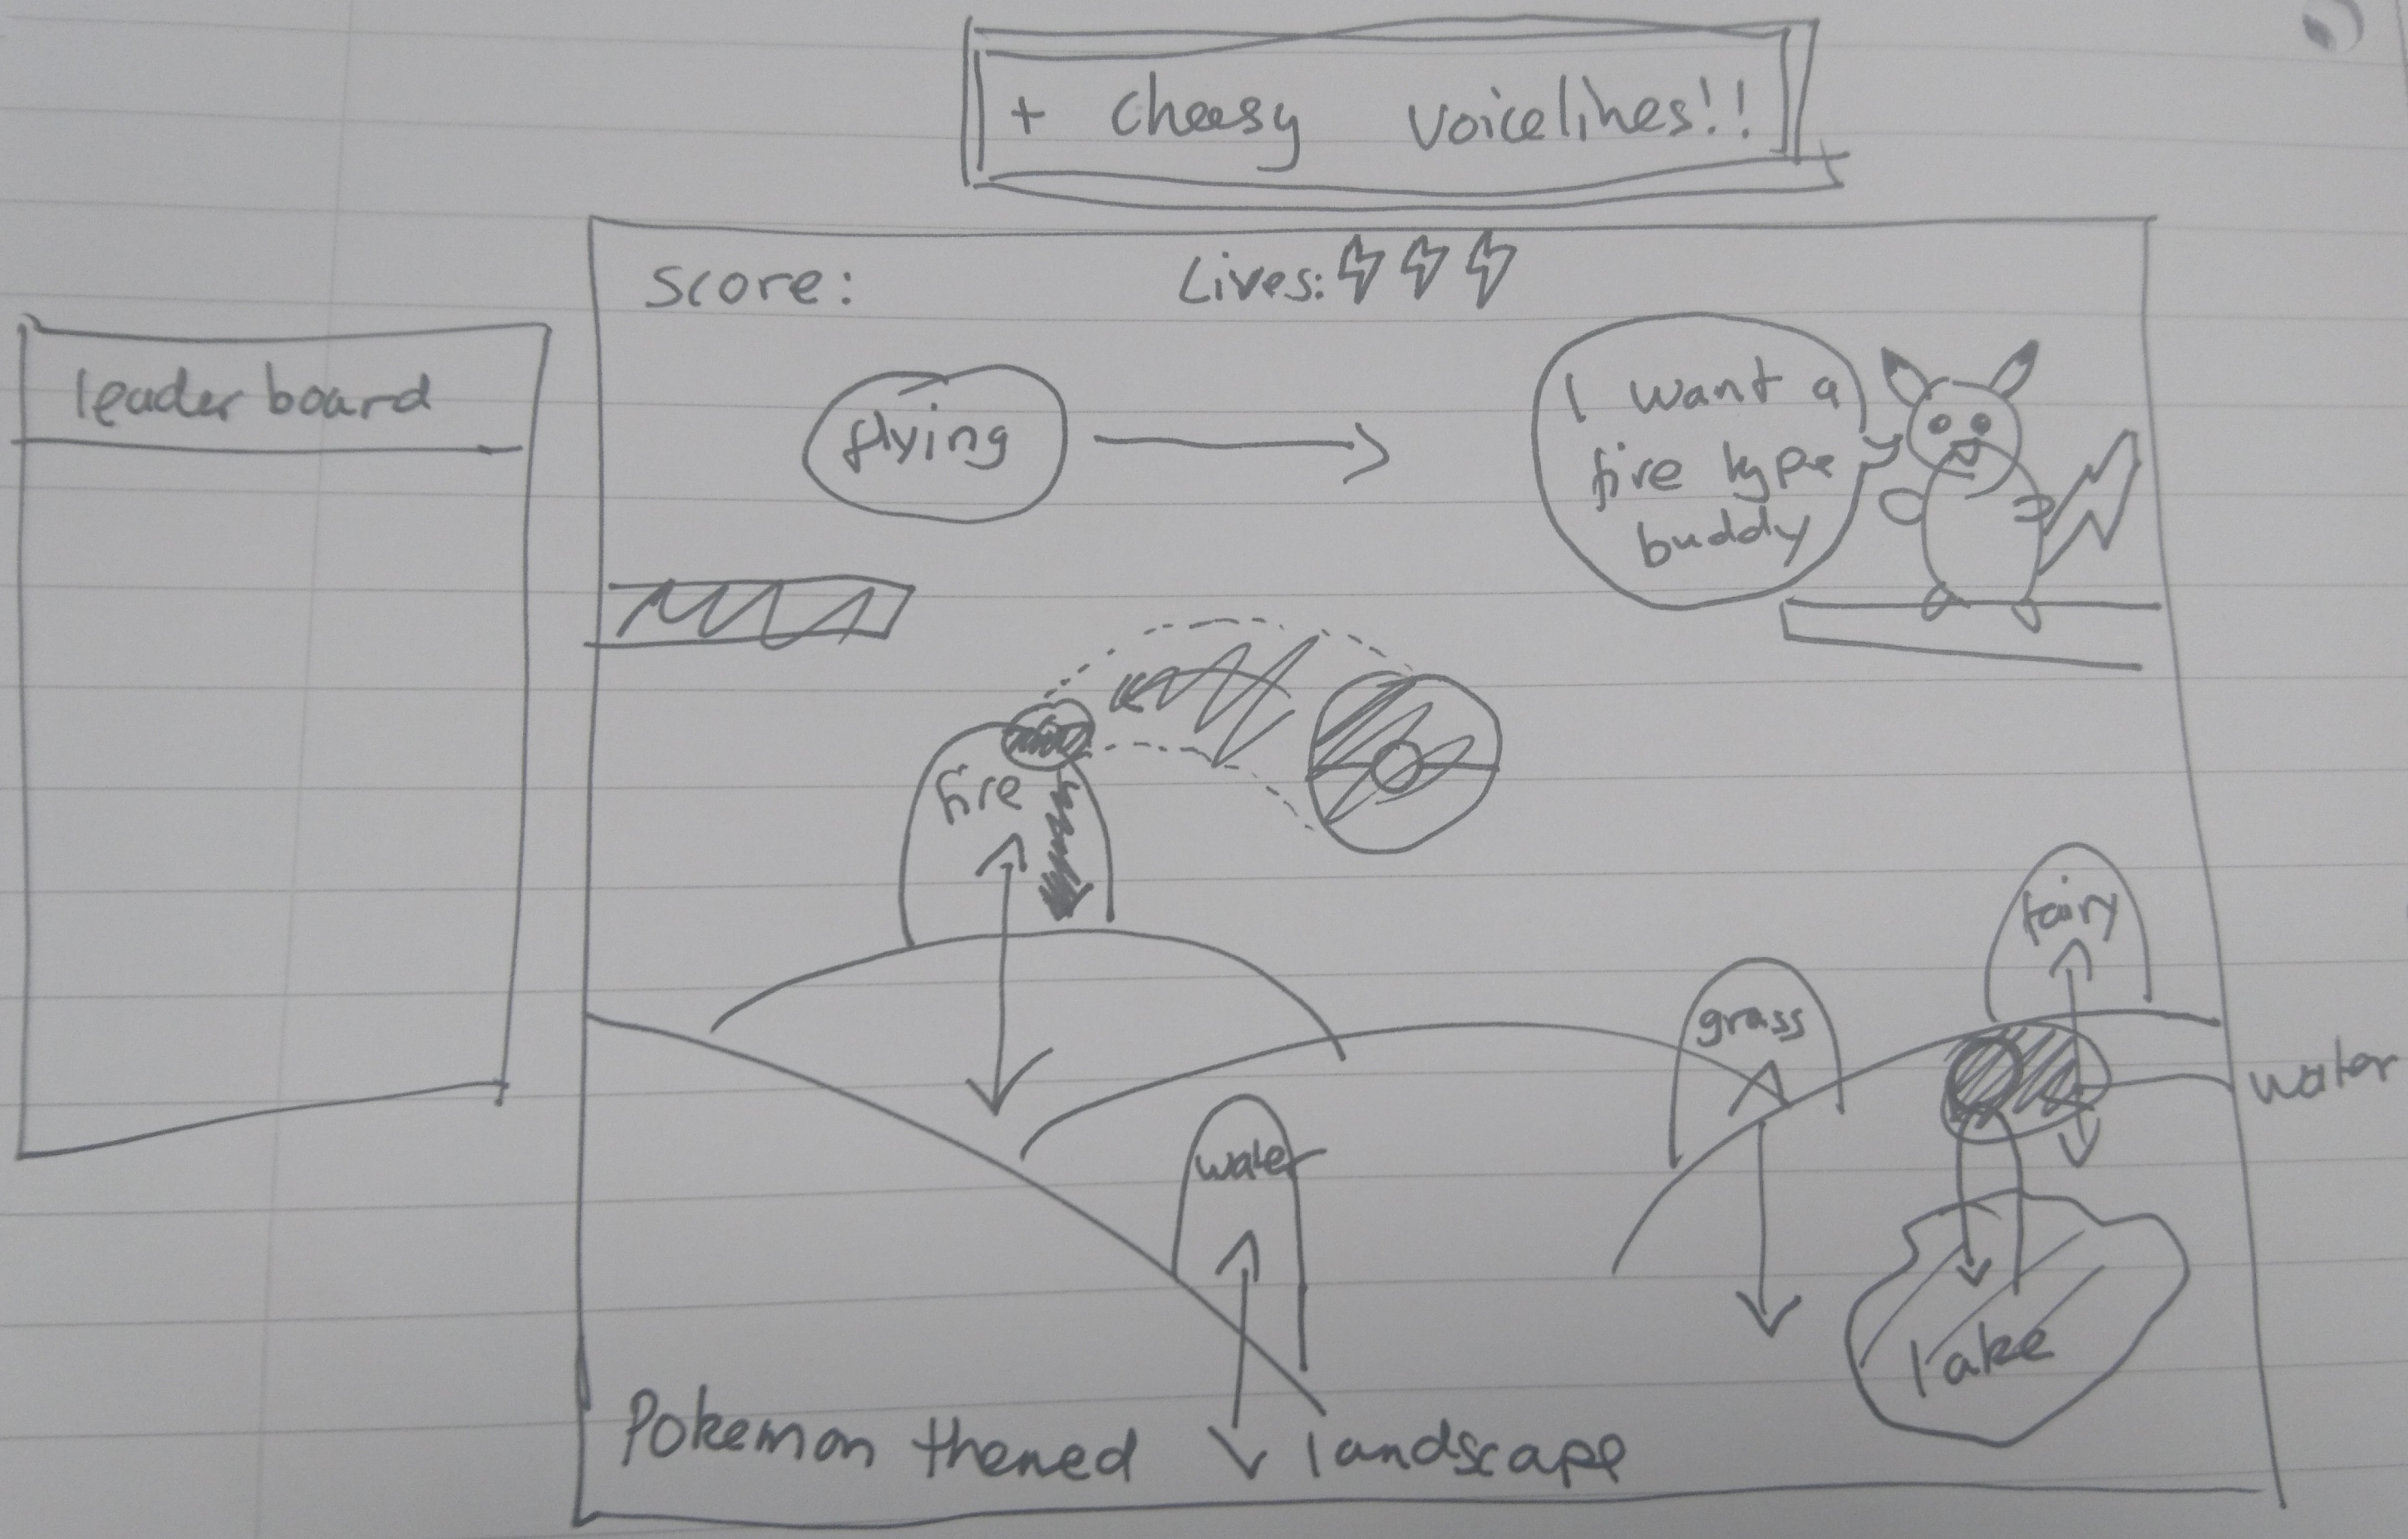 + cheesy voicelines!!
score:
Lives:
leaderboard
flying
I want a
fire type
buddy
fire
fairy
grass
water
water
lake
Pokemon themed landscape